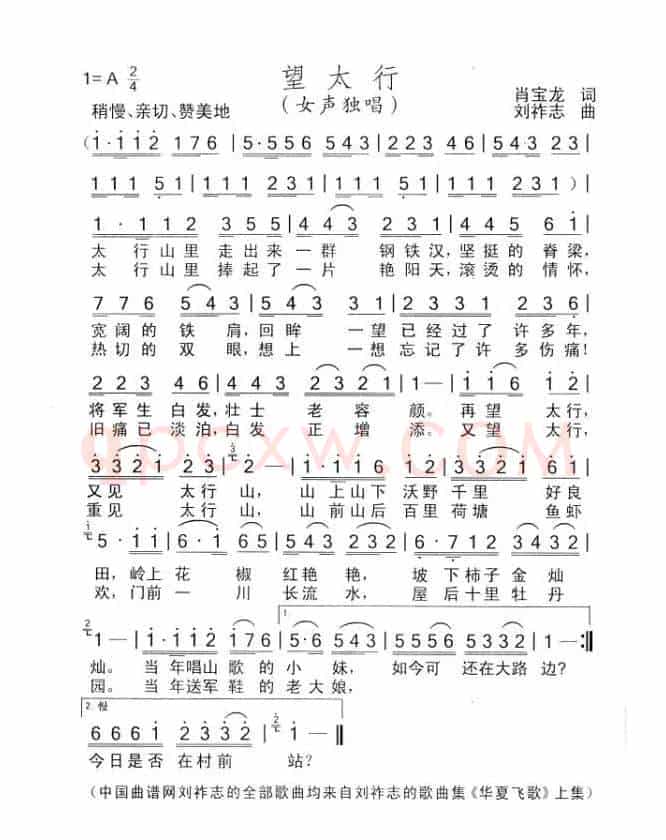 望太行
(女声独唱)
1=A 2/4
稍慢、亲切、赞美地
肖宝龙 词
刘祚志 曲
(1·112 176 | 5·556 543 | 223 46 | 543 223 |
111 51 | 111 231 | 111 51 | 111 231) |
1·112 355 | 443 231 | 223 5 5 | 5·671 2 |
太行山里 走出来一群 钢铁汉,坚挺的 脊梁,
太行山里 捧起了一片 艳阳天,滚烫的 情怀,
776 543 | 231 223 | 443 443 | 231 223 |
宽阔的 铁肩,回眸 一望已经过了 许多年,
热切的 双眼,想上 一想忘记了许 多伤痛!
223 46 | 543 223 | 2321 | 1— | 116 12 |
将军生白发,壮士 老容颜。再望 太行,
旧痛已淡泊,白发 正增添。又望 太行,
33221 2— | 1·116 | 2321 | 61 |
又见 太行山, 山上山下 沃野千里 好良
重见 太行山, 山前山后 百里荷塘 鱼虾
5·1 | 6·1 65 | 543 232 | 5·1 | 3432 |
田,岭上花 椒红艳艳, 坡下柿子金灿
欢,门前一 川长流水, 屋后十里牡丹
1— | 1·112 | 176 | 5·6 543 | 5555 5332 | 1— :‖
灿。当年唱山歌的小妹, 如今可 还在大路边?
园。当年送军鞋的老大娘,
1.
2. 慢
6661 | 232 | 2321 | 1— ‖
今日是否在村前 站?
(中国曲谱网刘祚志的全部歌曲均来自刘祚志的歌曲集《华夏飞歌》上集)
qpcxw.COM